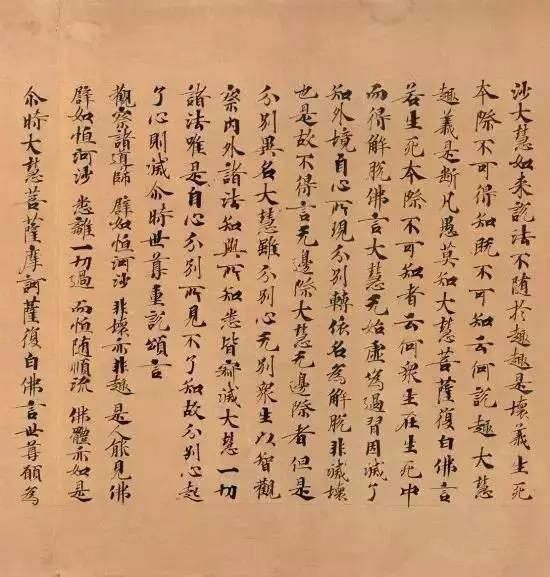 沙大慧如来說法不随於趣趣是壞義生死
本際不可得知既不可知云何說趣大慧
趣義是断凡愚莫知大慧菩薩復白佛言
若生死本際不可知者云何衆生在生死中
而得解脫佛言大慧无始虛為過習因滅了
知外境自心所現分別轉依名為解脫非滅壞
也是故不得言无邊際大慧无邊際者但是
分別異名大慧離分別心无別衆生以智觀
察内外諸法知與所知悉皆寂滅大慧一切
諸法唯是自心分別所見不了知故分別心起
了心則滅尒時世尊重說頌言
觀察諸導師 譬如恒河沙 非壞亦非趣 是人能見佛
譬如恒河沙 悉離一切過 而恒随順流 佛體亦如是
尒時大慧菩薩摩訶薩復白佛言世尊願為